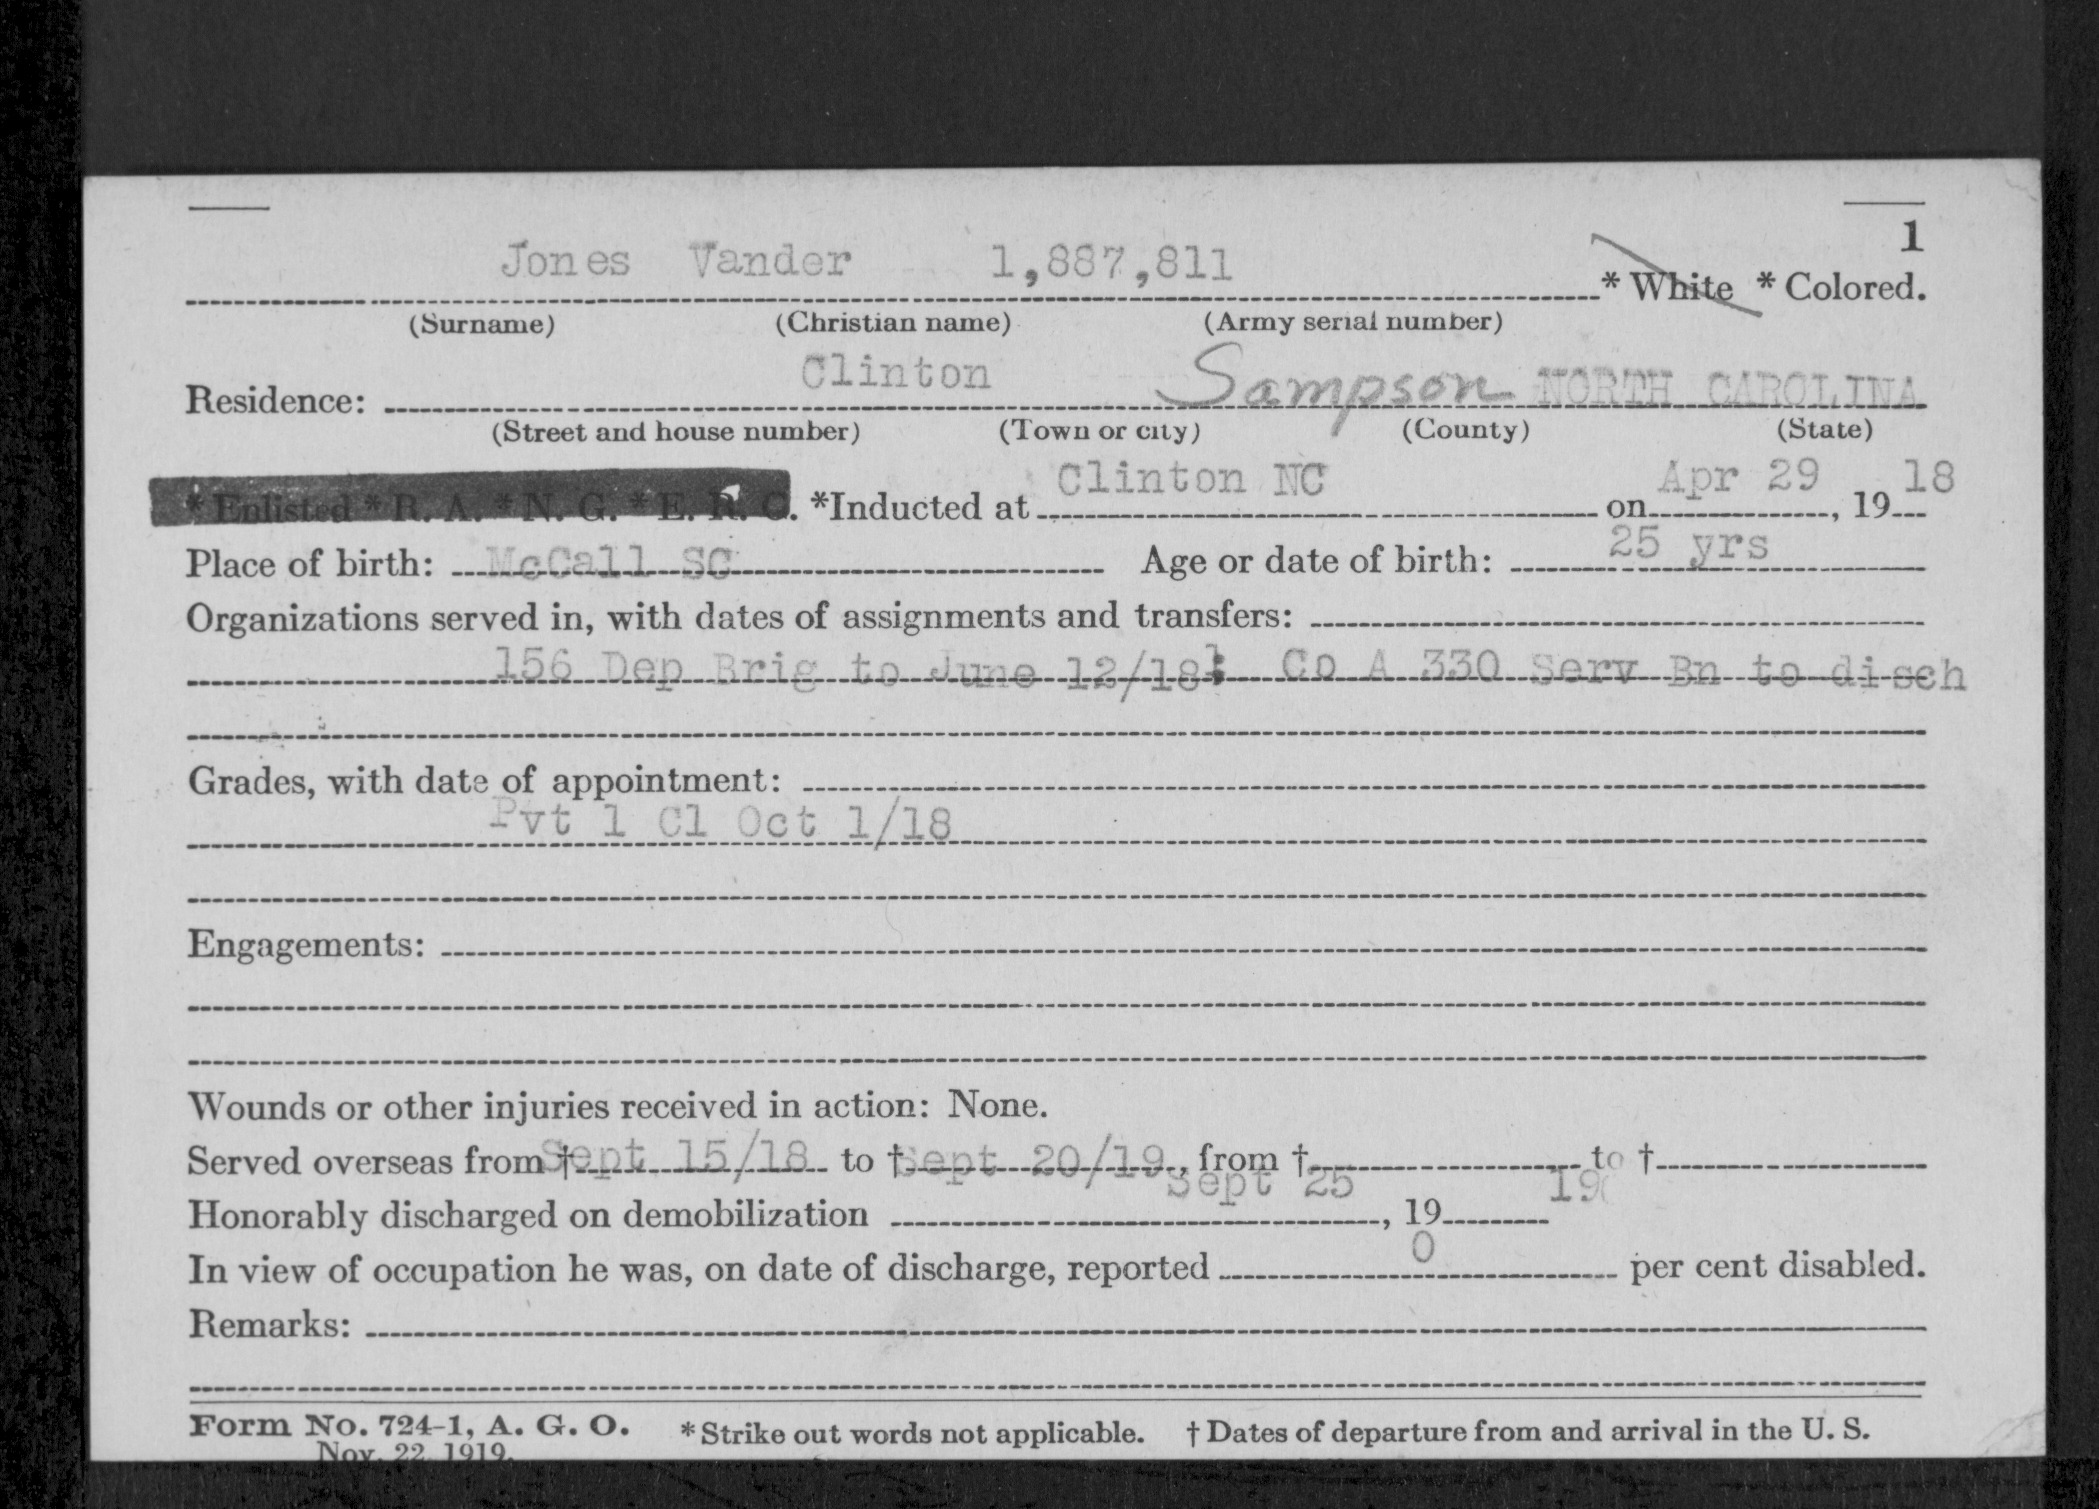 1
Jones Vander 1,887,811 * White * Colored.
(Surname) (Christian name) (Army serial number)
Residence: Clinton Sampson NORTH CAROLINA
(Street and house number) (Town or city) (County) (State)
* Enlisted * R. A. * N. G. * E. R. C. *Inducted at Clinton NC on Apr 29, 19 18
Place of birth: McCall SC Age or date of birth: 25 yrs
Organizations served in, with dates of assignments and transfers:
156 Dep Brig to June 12/18; Co A 330 Serv Bn to disch
Grades, with date of appointment:
Pvt 1 Cl Oct 1/18
Engagements:
Wounds or other injuries received in action: None.
Served overseas from † Sept 15/18 to † Sept 20/19, from † to †
Honorably discharged on demobilization Sept 25, 19 19
In view of occupation he was, on date of discharge, reported 0 per cent disabled.
Remarks:
Form No. 724-1, A. G. O. * Strike out words not applicable. † Dates of departure from and arrival in the U. S.
Nov. 22, 1919.